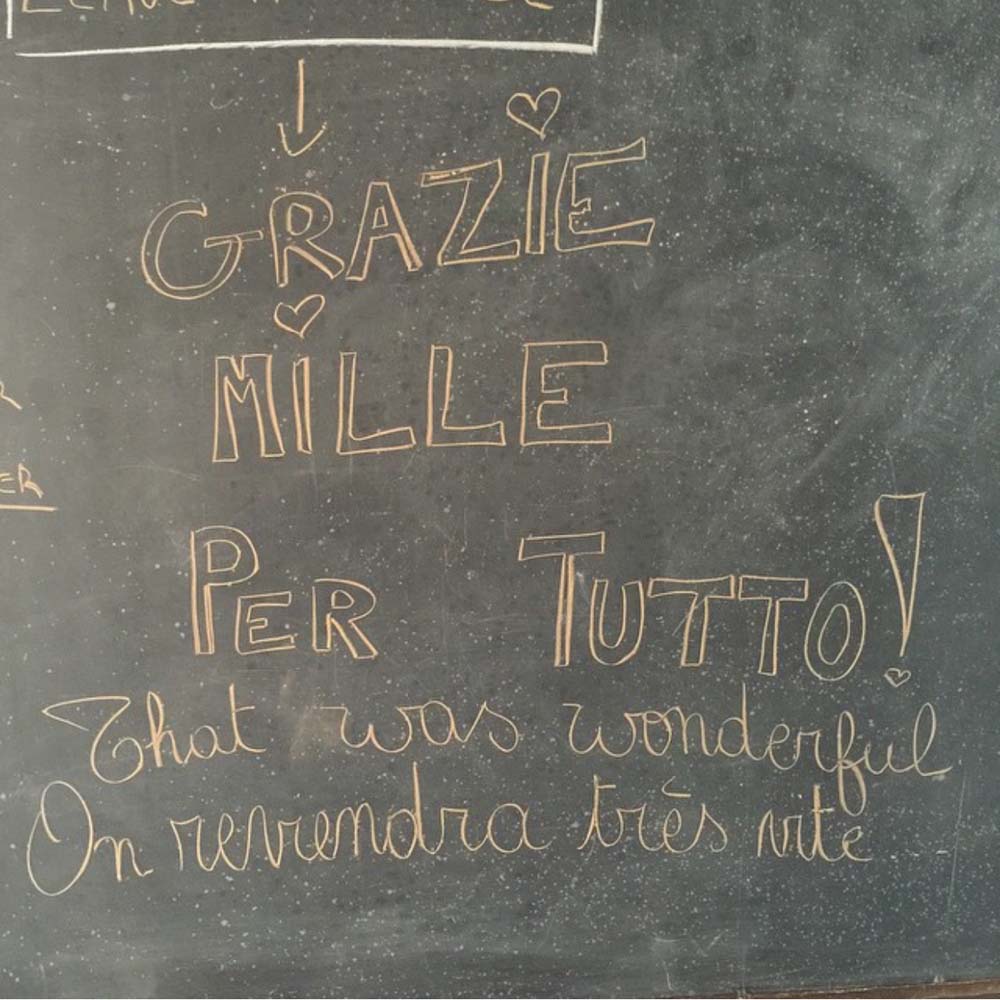 GRAZIE
MILLE
PER TUTTO!
That was wonderful
On revrendra très vite
ER